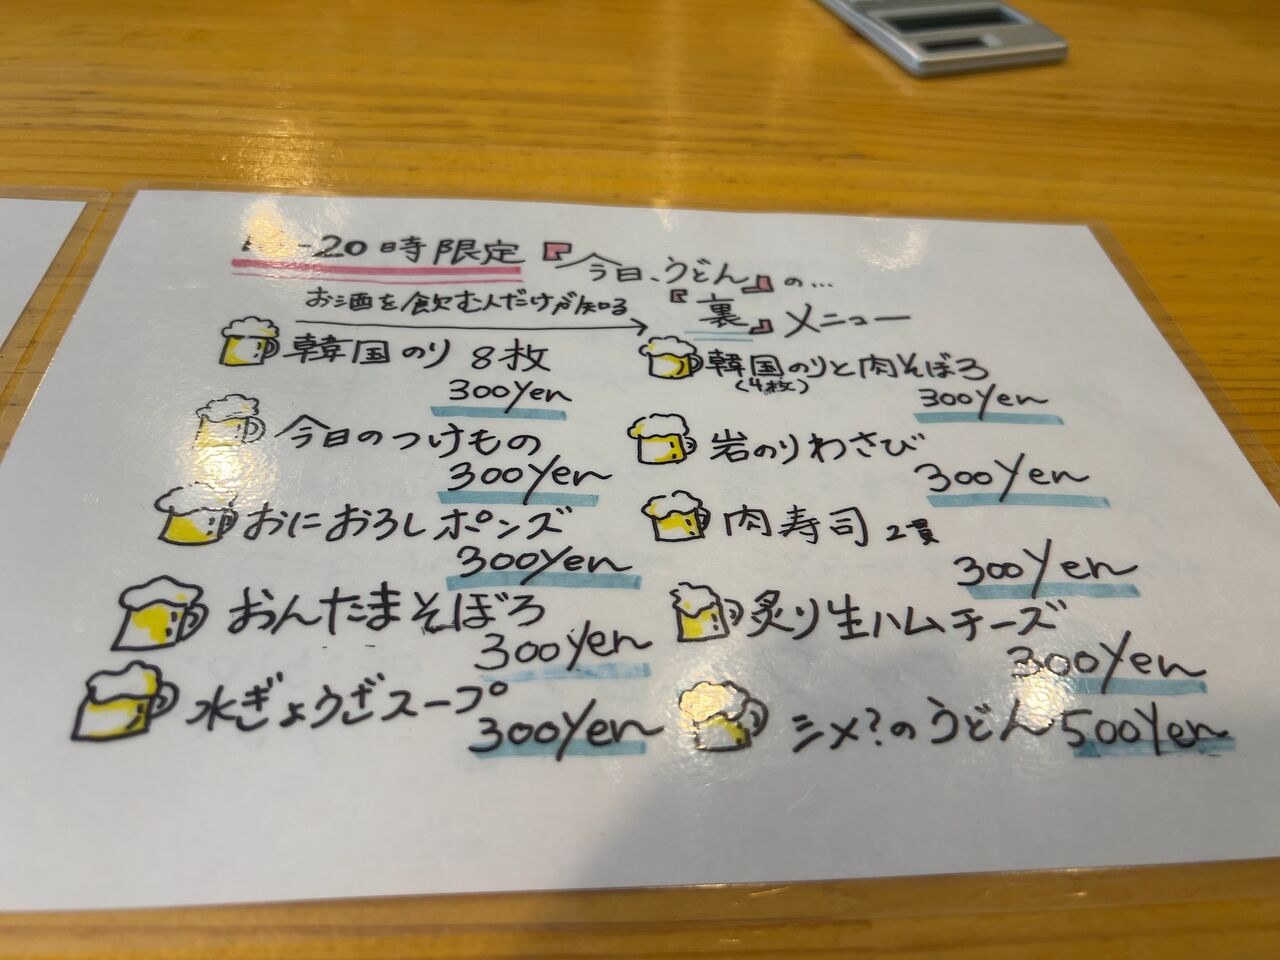 -20時限定『今日、うどん』の...
お酒を飲む人だけが知る
『裏』メニュー
韓国のり 8枚
300Yen
今日のつけもの
300Yen
おにおろしポンズ
300Yen
おんたまそぼろ
300Yen
水ぎょうざスープ
300Yen
韓国のりと肉そぼろ
(4枚)
300Yen
岩のりわさび
300Yen
肉寿司 2貫
300Yen
炙り生ハムチーズ
300Yen
シメ?のうどん 500Yen